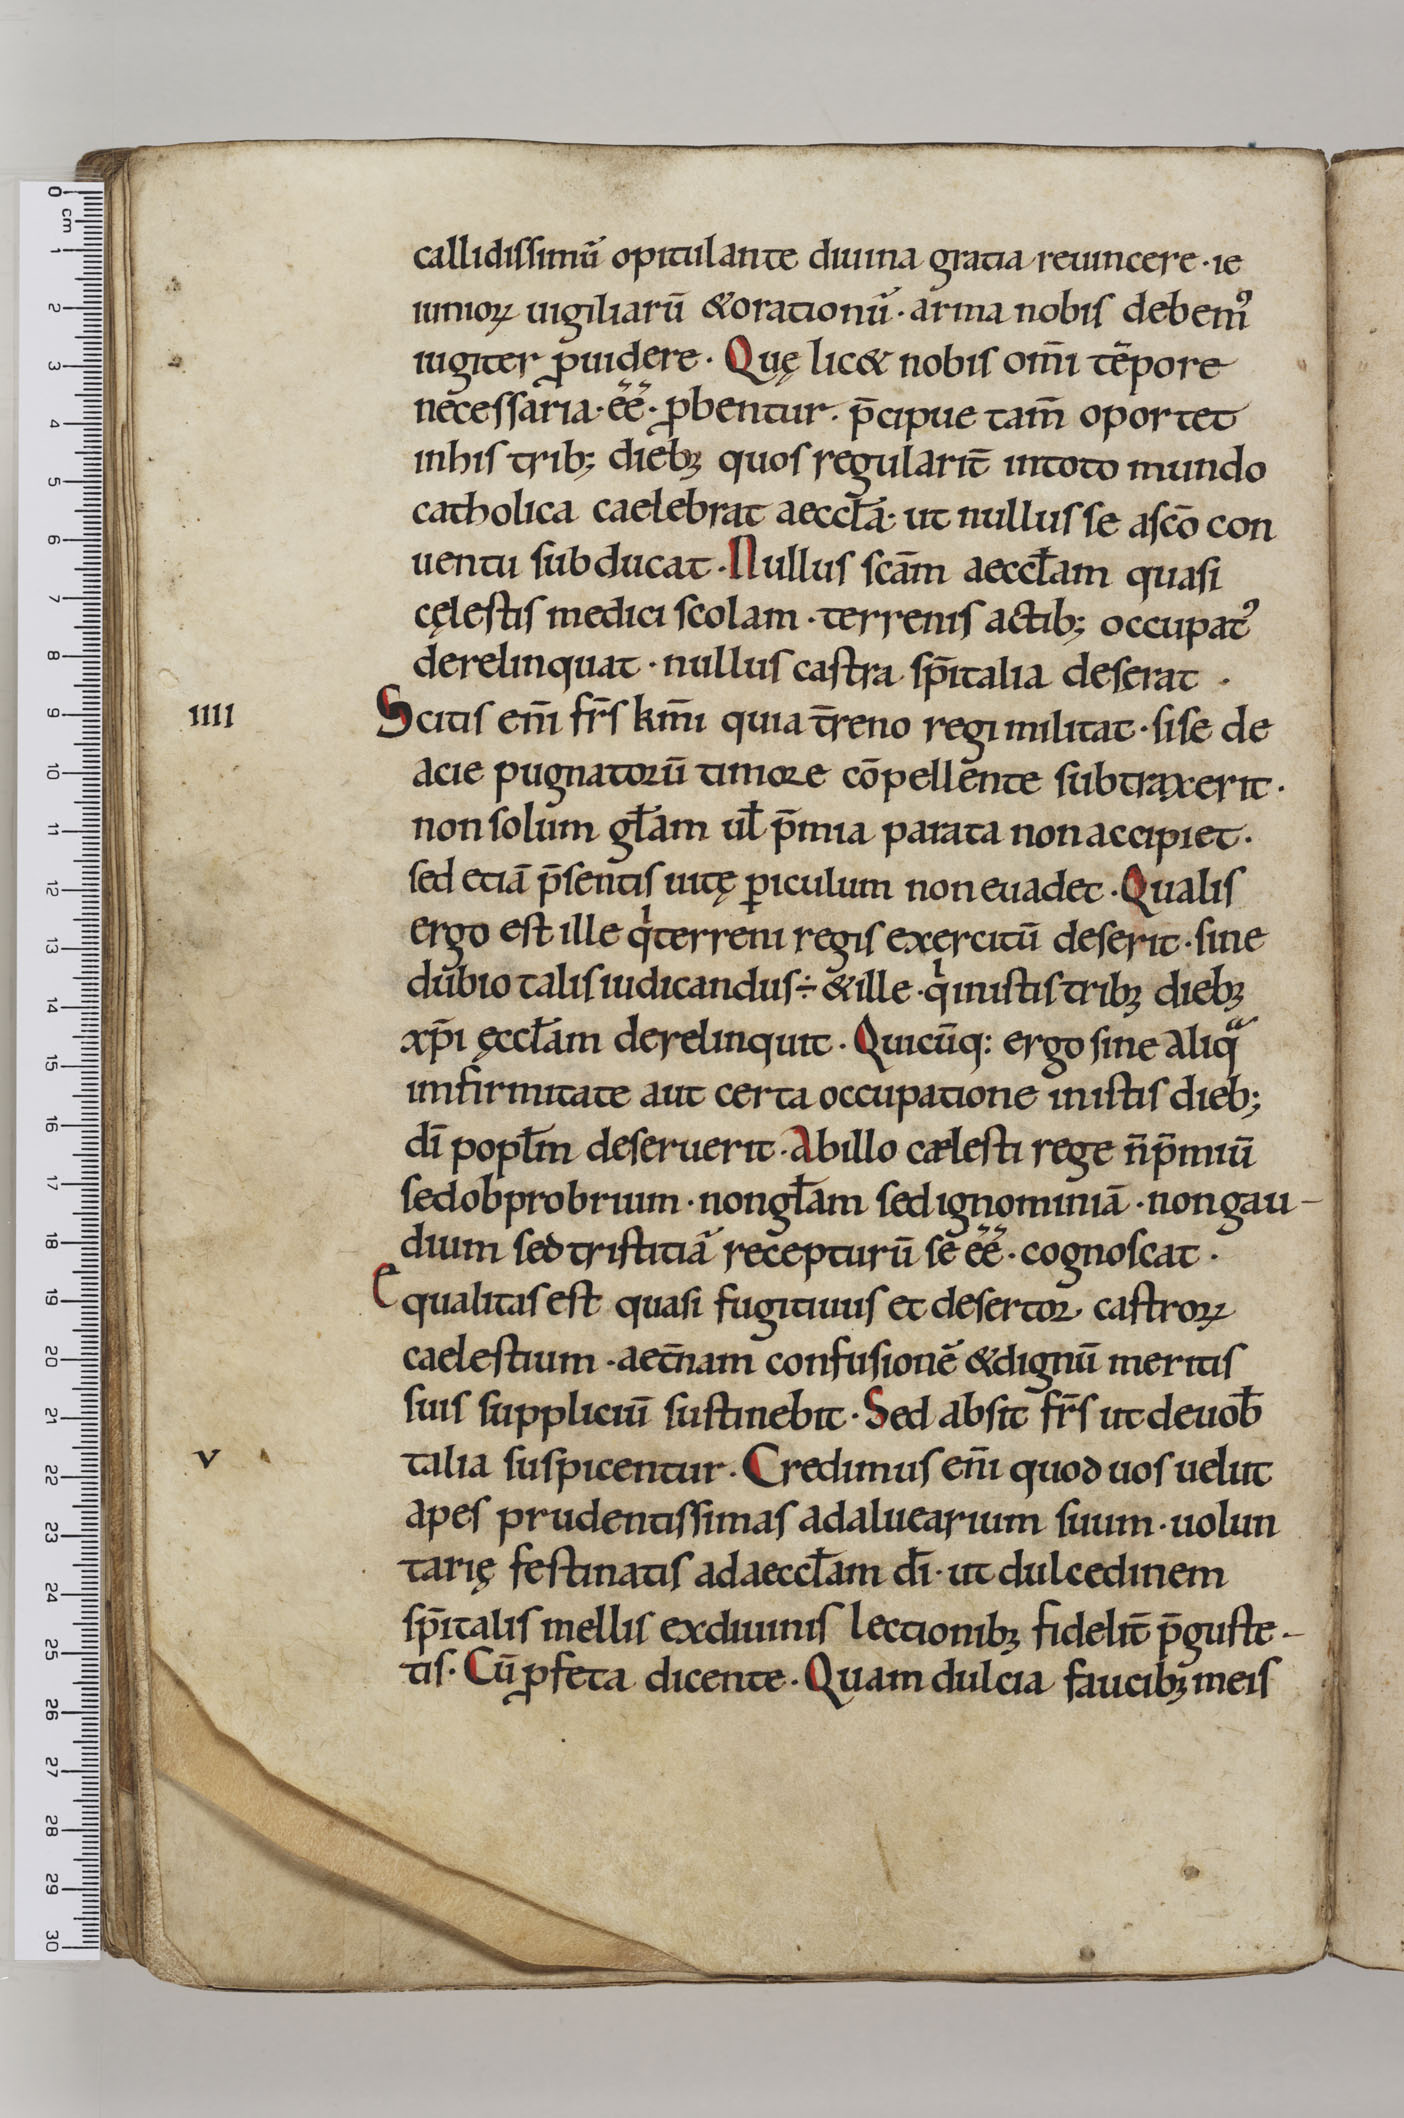 callidissimū opitulante diuina gratia reuincere · ie
iunioꝝ uigiliarū &orationū · arma nobis debemꝰ
iugiter ꝓuidere · Quę lic& nobis om̄i tēpore
necessaria · ēē · ꝓbentur · p̄cipue tam̄ oportet
inhis trib; diebꝫ quos regularit̄ intoto mundo
catholica caelebrat aeccl̄a · ut nullus se a sc̄o con
uentu subducat · Nullus scām aeccl̄am quasi
cęlestis medici scolam · terrenis actib; occupatꝰ
derelinquat · nullus castra sp̄italia deserat ·
IIII
Scitis eni̅ fr̄s km̄i quia t̄reno regi militat · si se de
acie pugnatorū timore cōpellente subtraxerit ·
non solum gl̄am ul̄ p̄mia parata non accipiet ·
sed etiā p̄sentis uitę ꝑiculum non euadet · Qualis
ergo est ille qͥ terreni regis exercitū deserit · sine
dubio talis iudicandus ÷ &ille · qͥ inistis tribꝫ diebꝫ
xp̄i ęccl̄am derelinquit · Quicūq: ergo sine aliqᵃ
imfirmitate aut certa occupatione in istis dieb;
dī popl̄m deseruerit · Abillo cælesti rege n̄ p̄miū
sed obprobrium · non gl̄am sed ignominiā · non gau-
dium sed tristitiā recepturū se ēē · cognoscat ·
Et
qualitas est quasi fugitiuus et desertor castroꝝ
caelestium · aet̄nam confusionē &dignū meritis
suis suppliciū sustinebit · Sed absit fr̄s ut deuob̄
V
talia suspicentur · Credimus eni̅ quod uos uelut
apes prudentissimas adaluearium suum · uolun
tarię festinatis adaeccl̄am dī · ut dulcedinem
sp̄italis mellis exdiuinis lectionibꝫ fidelit̄ p̄guste-
tis · Cū ꝓfeta dicente · Quam dulcia faucibꝫ meis